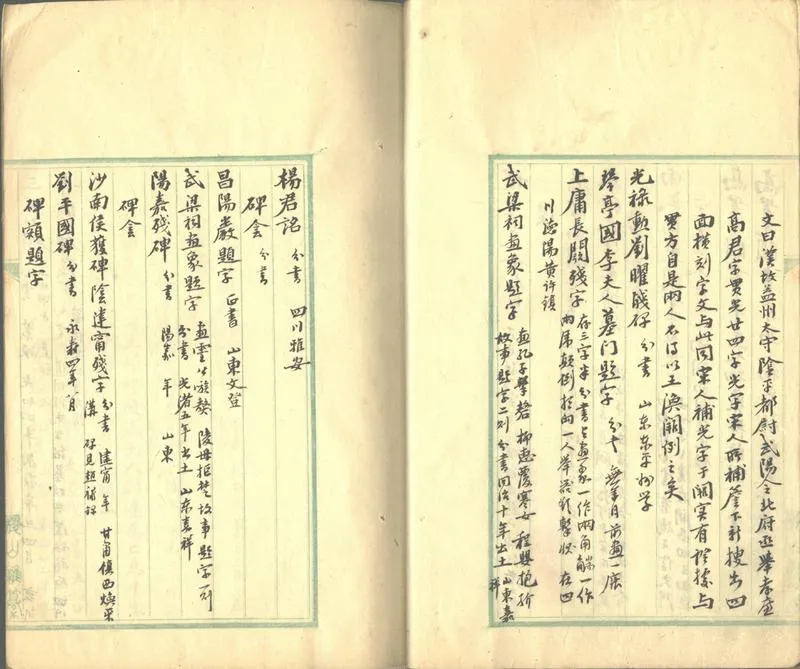 文曰漢故益州太守陰平都尉武陽令北府丞舉孝廉
高君字貫光廿四字光字宋人所補簷下新搜出四
面橫刻字文与此同宋人補光字于闕實有證據与
貫方自是兩人不得以王渙闕例之矣
光祿勳劉曜殘碑 分書 山東東平州學
琴亭國李夫人墓门題字 分書 無年月前畫一鹿
上庸長闕殘字 存三字半分書上畫家一作兩角觝一作
兩虎顛倒於向一人舉器對擊狀 在四
川德陽黃許鎮
武梁祠畫象題字 畫孔子擊磬 柳惠覆寒女 程嬰抱孤
故事題字二列分書同治十年出土 山東嘉
祥
楊君銘 分書 四川雅安
碑侌 分書
昌陽嚴題字 正書 山東文登
武梁祠畫象題字 畫靈公嗾獒 陵母拒楚故事題字一列
分書 光緒五年出土 山东嘉祥
陽嘉殘碑 分書 陽嘉 年 山東
碑侌
沙南侯獲碑陰建甯殘字 分書 建甯 年 甘肅鎮西煥采
溝 碑見趙補録
劉平國碑 分書 永壽四年八月
碑額題字